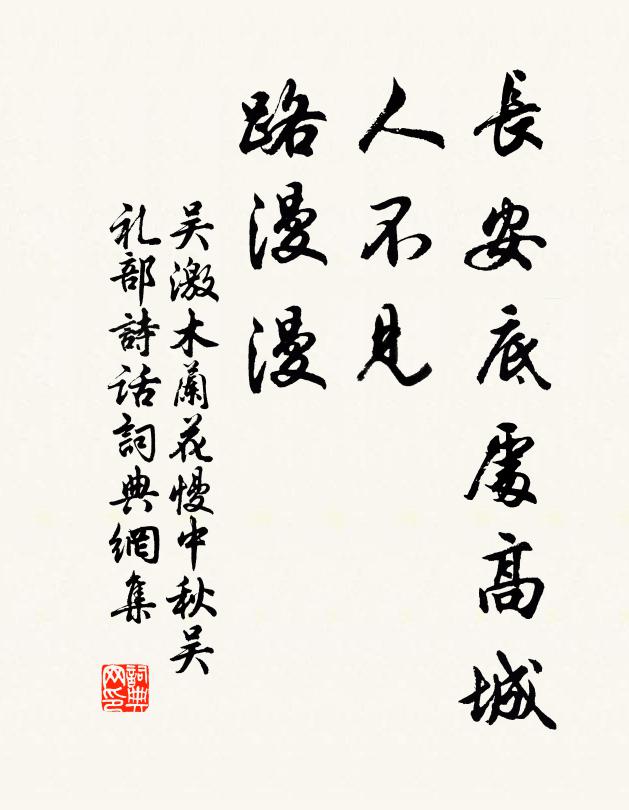 長安底處高城
人不見
路漫漫
吴激木蘭花慢中秋吴
礼部詩话詞典網集
詞典
网印